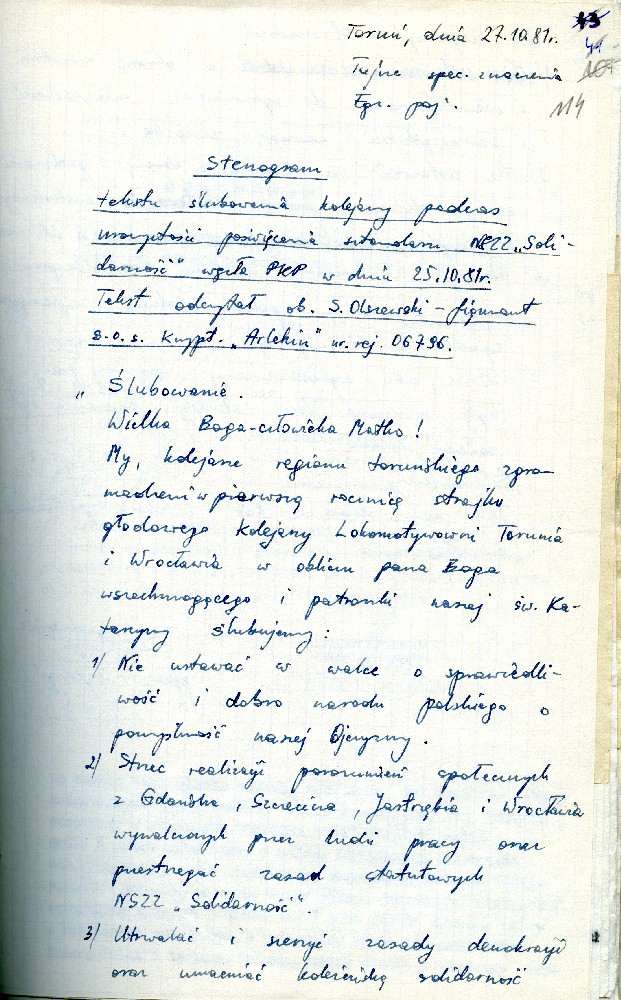 Toruń, dnia 27.10.81r.
Tajne spec. znaczenia
Egz. poj.
114
Stenogram
tekstu ślubowania kolejarzy podczas
uroczystości poświęcenia sztandaru NSZZ „Soli-
darność” węzła PKP w dniu 25.10.81r.
Tekst odczytał ob. S. Olszewski – figurant
s.o.s. krypt. „Arlekin” nr. rej. 06796.
„ Ślubowanie.
Wielka Boga-człowieka Matko!
My, kolejarze regionu toruńskiego zgro-
madzeni w pierwszą rocznicę strajku
głodowego kolejarzy Lokomotywowni Torunia
i Wrocławia w obliczu pana Boga
wszechmogącego i patronki naszej św. Ka-
tarzyny ślubujemy:
1/ Nie ustawać w walce o sprawiedli-
wość i dobro narodu polskiego o
pomyślność naszej Ojczyzny.
2/ Strzec realizacji porozumień społecznych
z Gdańska, Szczecina, Jastrzębia i Wrocławia
wywalczonych przez ludzi pracy oraz
przestrzegać zasad statutowych
NSZZ „Solidarność”.
3/ Utrwalać i szerzyć zasady demokracji
oraz umacniać koleżeńską solidarność